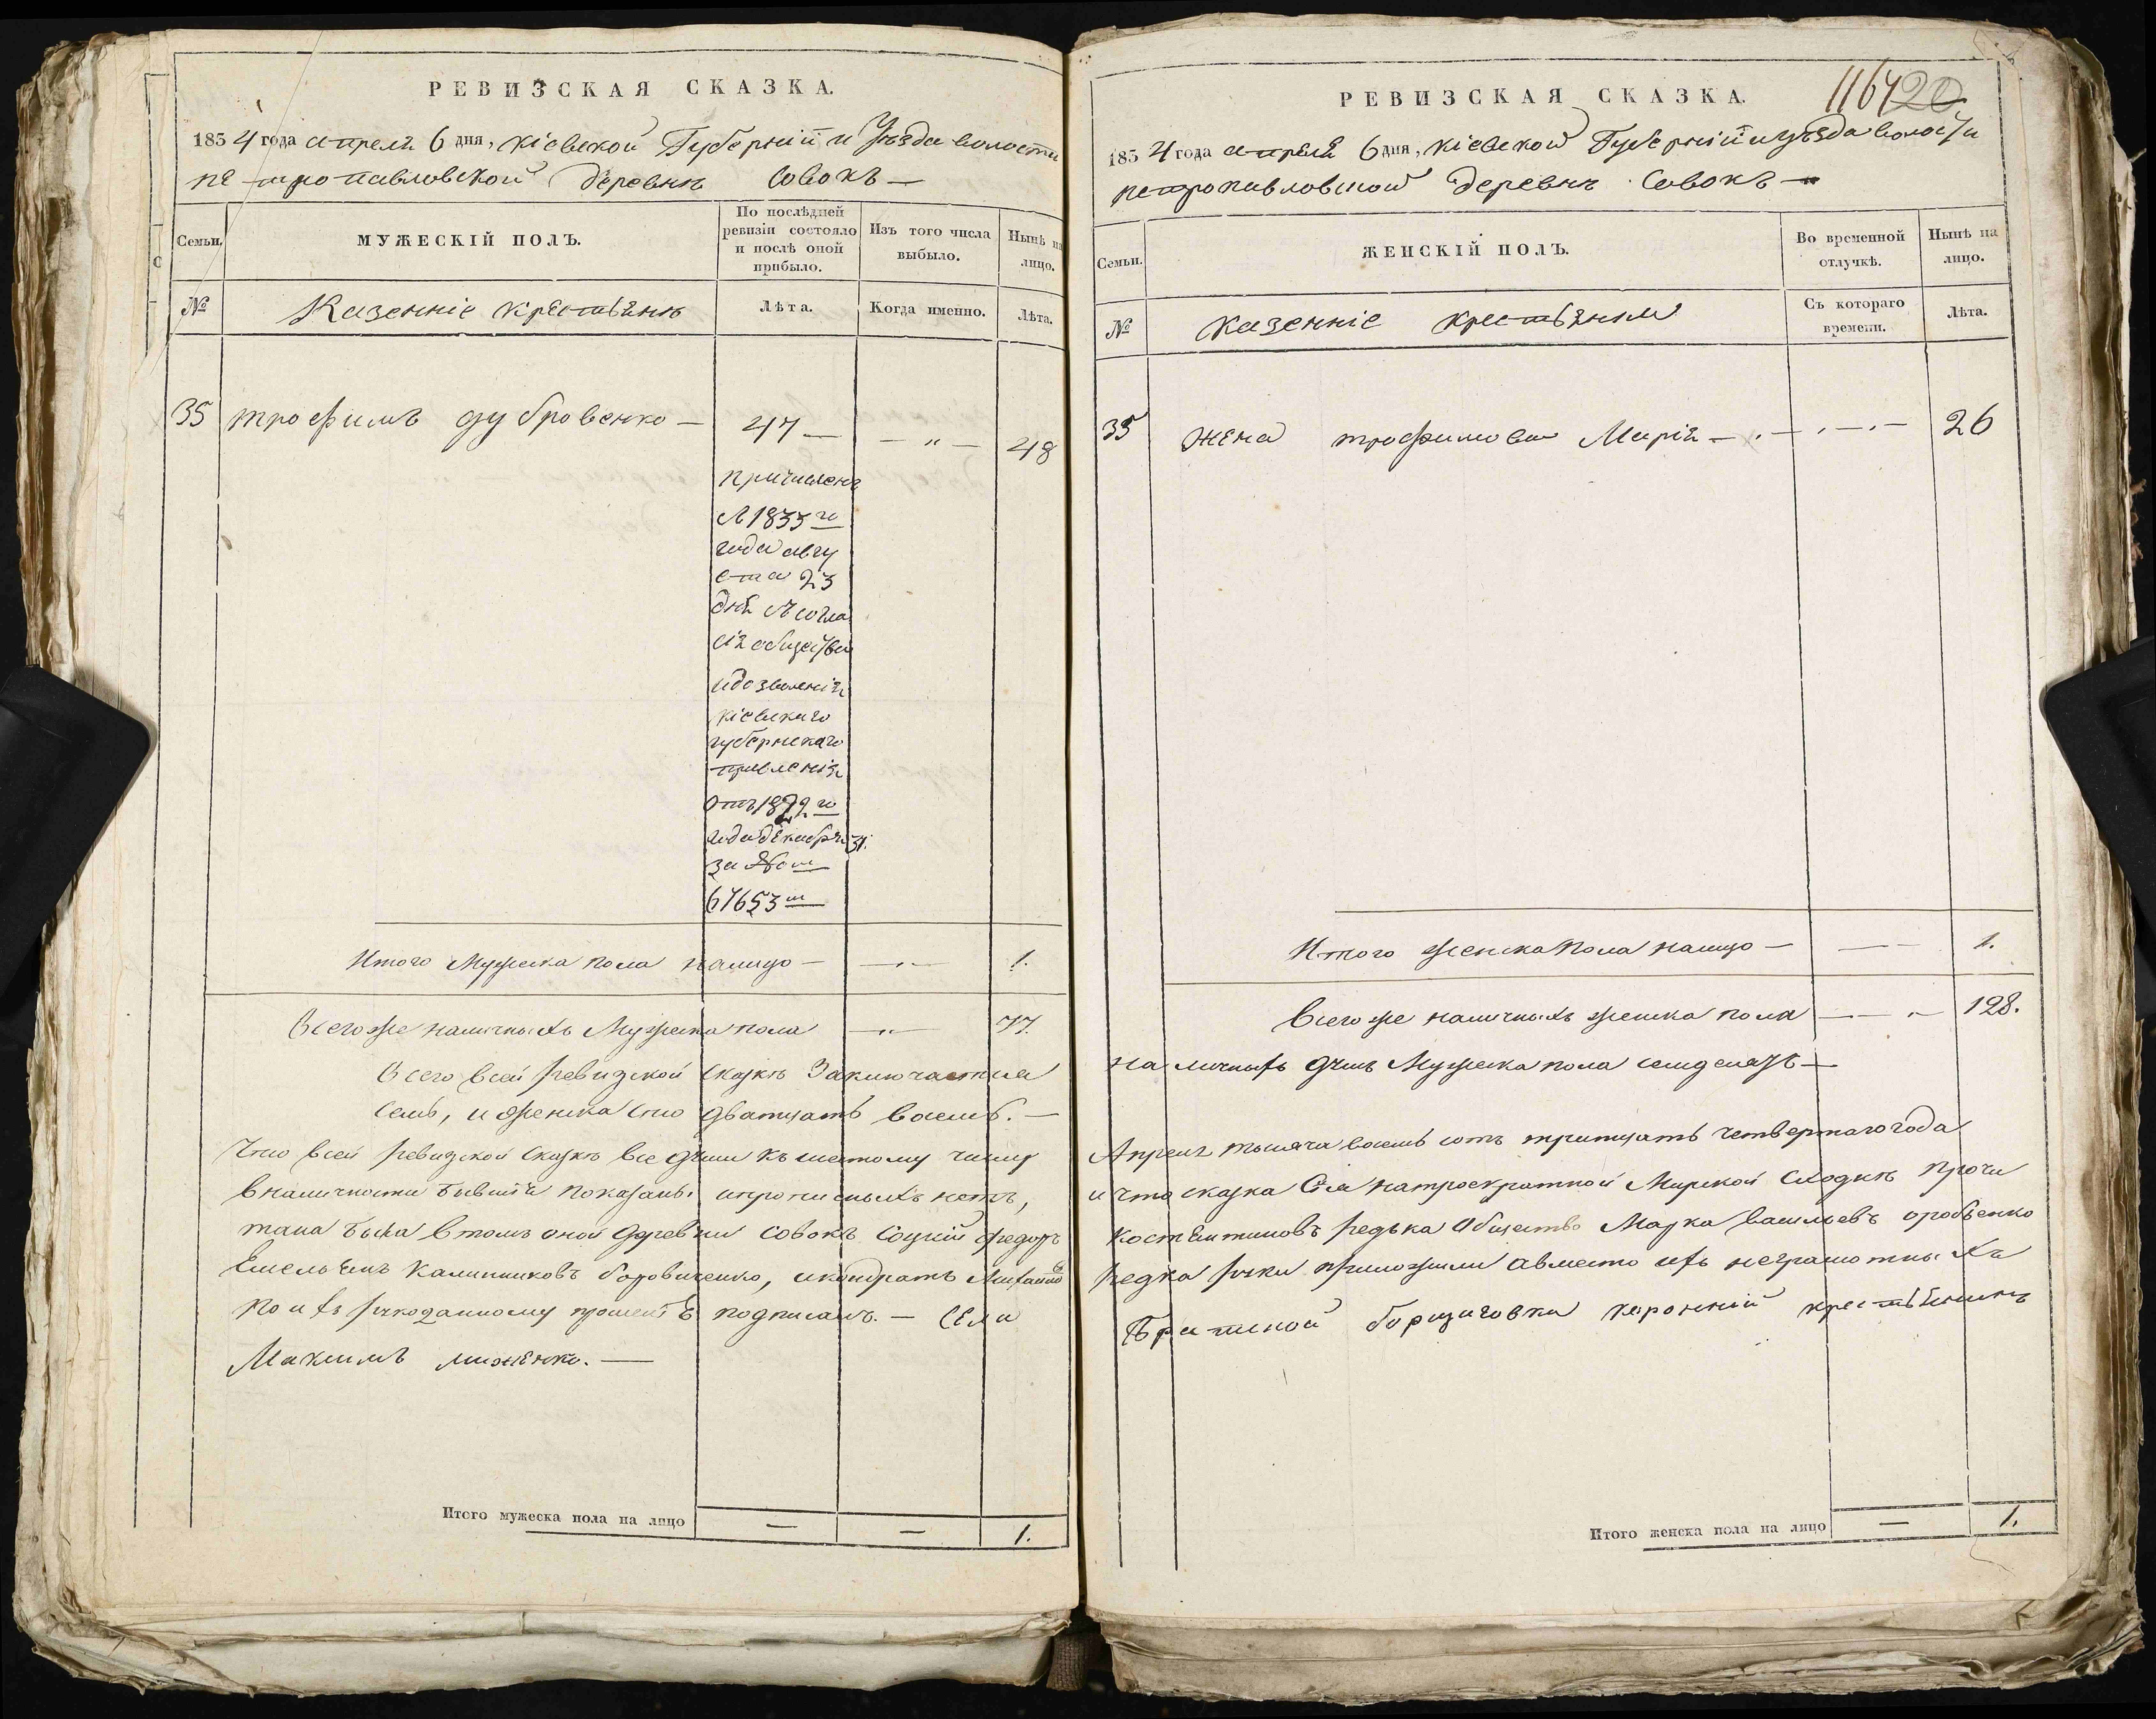 РЕВИЗСКАЯ СКАЗКА.
1834 года апреля 6 дня, Кіевской Губерніи и Уѣзда волости
петропавловской деревнѣ Совокъ —
Семьи.
МУЖЕСКІЙ ПОЛЪ.
По послѣдней ревизіи состояло и послѣ оной прибыло.
Изъ того числа выбыло.
Нынѣ на лицо.
№
Казенніе крестьянѣ
Лѣта.
Когда именно.
Лѣта.
35 трофимъ дубровенко — 47 — — „ — 48
причисленъ
съ 1833 го
года авгу
ста 23
дня съ согла
сія общества
и дозволенія
кіевскаго
губернскаго
правленія
отъ 18 го
года декабря 31.
за №ом
67653 м
Итого Мужеска пола налицо — — „ — 1.
Всего же наличныхъ Мужеска пола — „ — 77.
Всего в сей ревизской скаскѣ Заключается
семь, и женска сто дватцать восемь. —
Что в сей ревизской скаскѣ все души къ шестому числу
в наличности бывшія показаны и прописныхъ нетъ,
тана была в томъ оной деревни Совокъ Соцкій Федоръ
Емельянъ Калинниковъ боровиченко, и кондратъ
по ихъ рукоданному прошенію подписалъ. — Села
Максимъ миненко. —
Итого мужеска пола на лицо — — 1.
РЕВИЗСКАЯ СКАЗКА.
116420
1834 года апреля 6 дня, Кіевской Губерніи и уѣзда волости
петропавловской деревнѣ Совокъ —
Семьи.
ЖЕНСКІЙ ПОЛЪ.
Во временной отлучкѣ.
Нынѣ на лицо.
№
казенніе крестьянки
Съ котораго времени.
Лѣта.
35 жена трофимова Марія — 26
Итого женска пола налицо — — 1.
Всего же наличныхъ женска пола — 128.
наличныхъ душъ Мужеска пола семдесятъ —
Апреля тысяча восемь сотъ тритцать четвертаго года
и что скаска Сія на троекратной Мирской сходкѣ прочи
Костянтиновъ редька Общество Марка Васильевъ оробьенко
редка руки приложили а вместо ихъ неграмотныхъ
Братской борщаговки коронній крестьянинъ
Итого женска пола на лицо — 1.